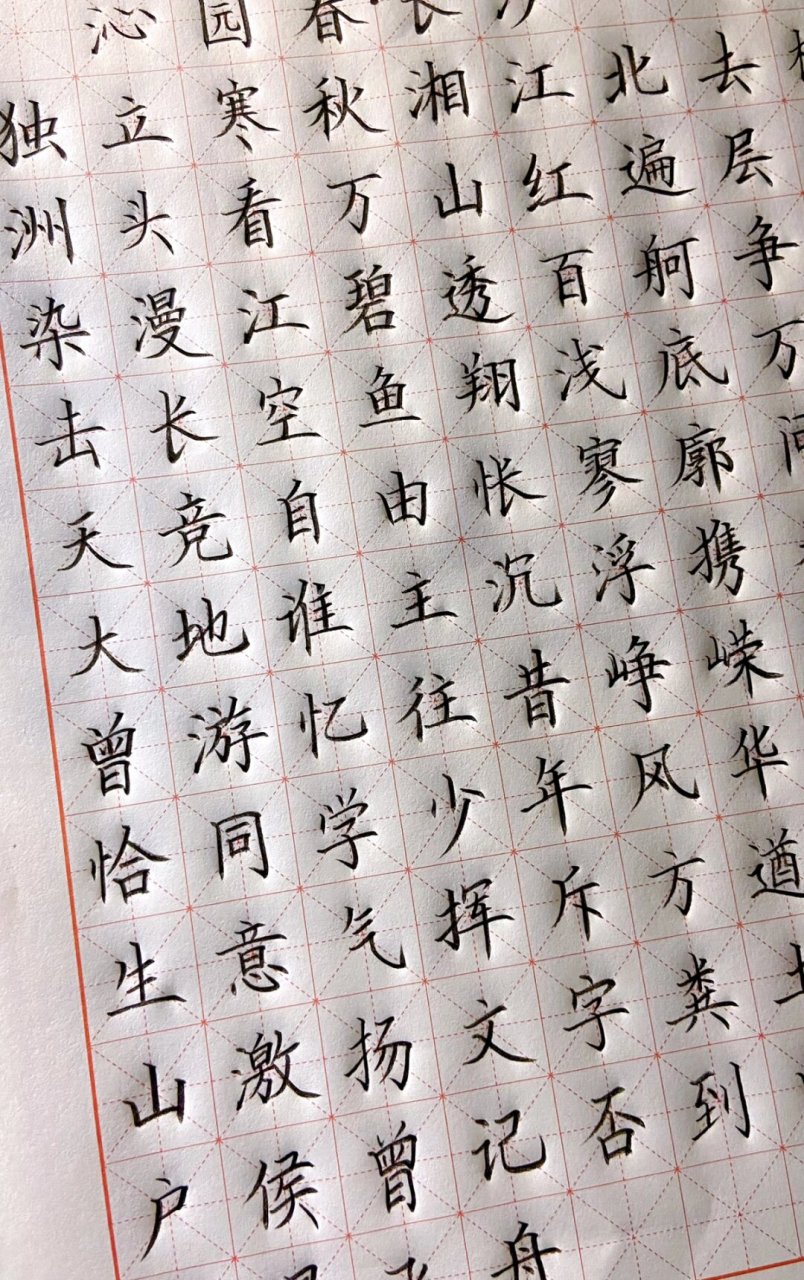 沁园春·长沙
独立寒秋湘江北去
洲头看万山红遍层
染漫江碧透百舸争
击长空鱼翔浅底万
天竞自由怅寥廓问
大地谁主沉浮携
曾游忆往昔峥嵘
恰同学少年风华
生意气挥斥方遒
山激扬文字粪土
户侯曾记否到
飞舟